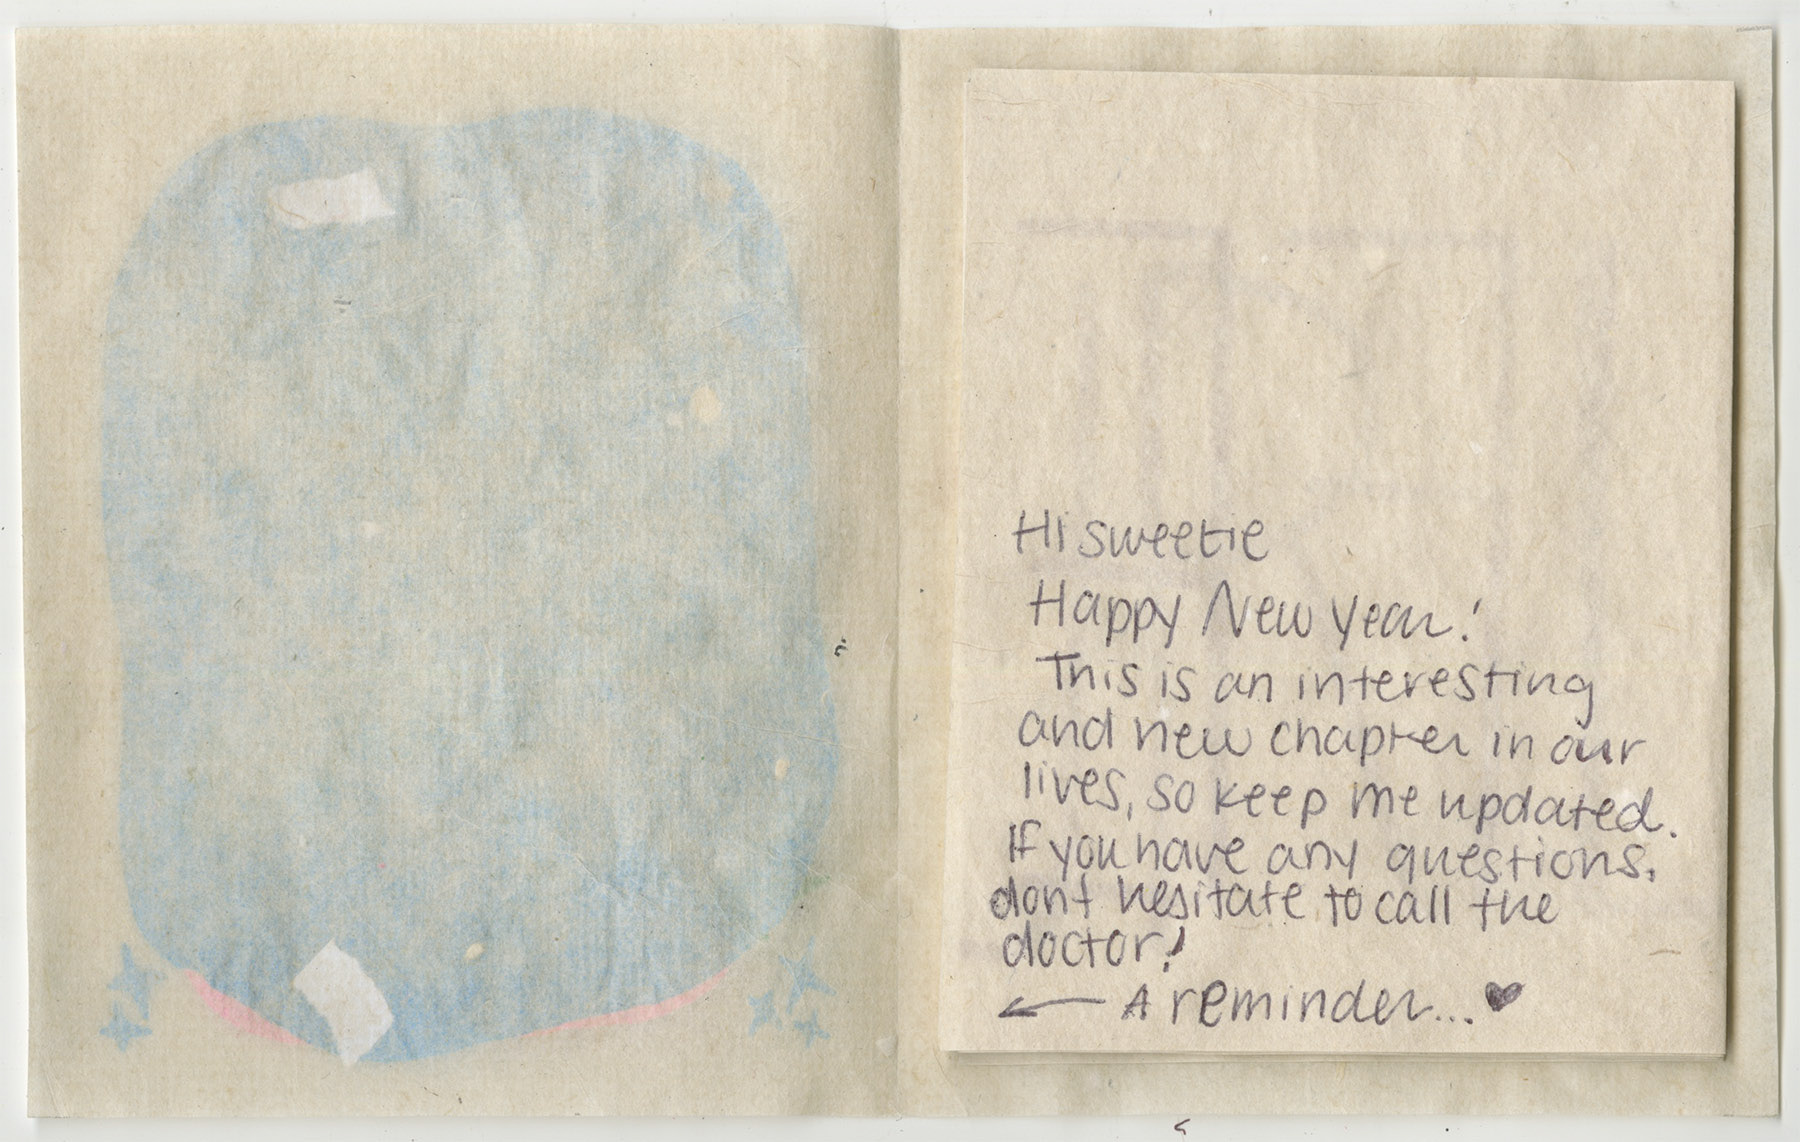 Hi sweetie
Happy New Year!
This is an interesting
and new chapter in our
lives, so keep me updated.
If you have any questions,
dont hesitate to call the
doctor!
← A reminder... ♥